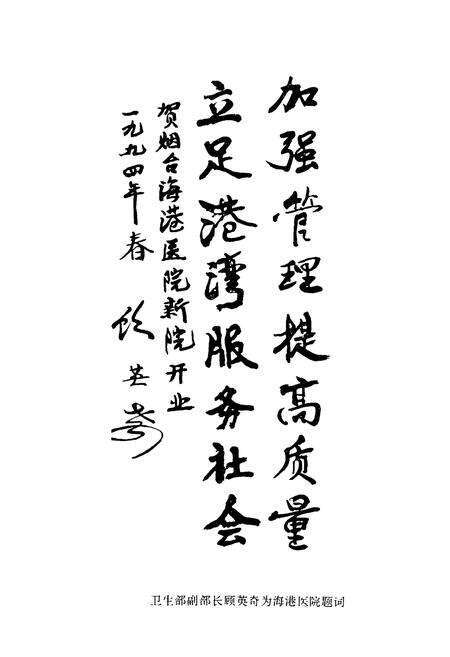 加强管理提高质量
立足港湾服务社会
贺烟台海港医院新院开业
一九九四年春
顾英奇
卫生部副部长顾英奇为海港医院题词